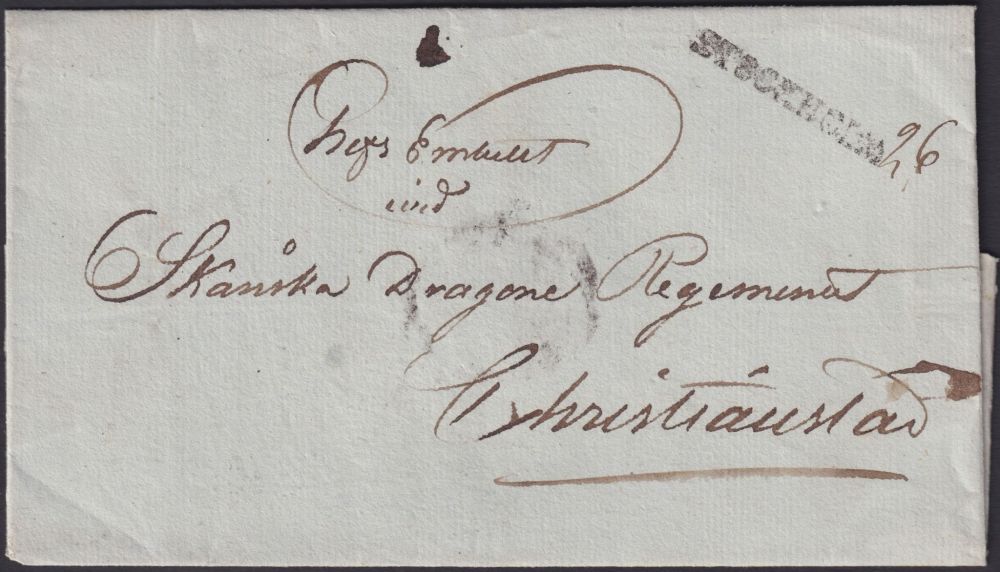 STOCKHOLM
26
Regs Embetet
wid
Skånska Dragone Regementet
Christianstad